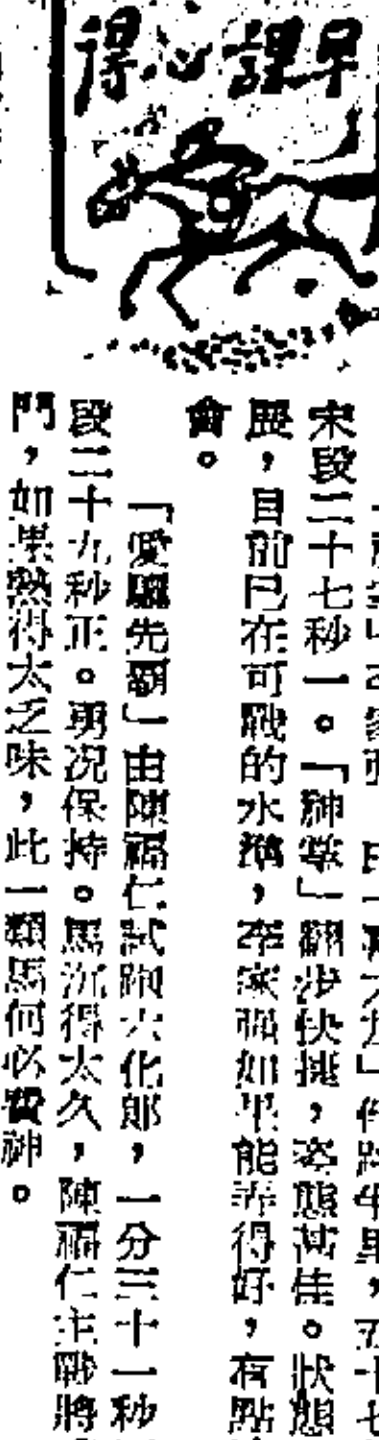 早課心得
末段二十七秒一。「神掌」翻步快捷,姿態甚佳。狀態
展,目前已在可戰的水準,李家雄如果能弄得好,有點
會。
「愛驅先霸」由陳福仁試跑六化郎,一分三十一秒
段二十九秒正。勇況保持。馬沉得太久,陳福仁主戰將
門,如果熱得太乏味,此一類馬何必費神。